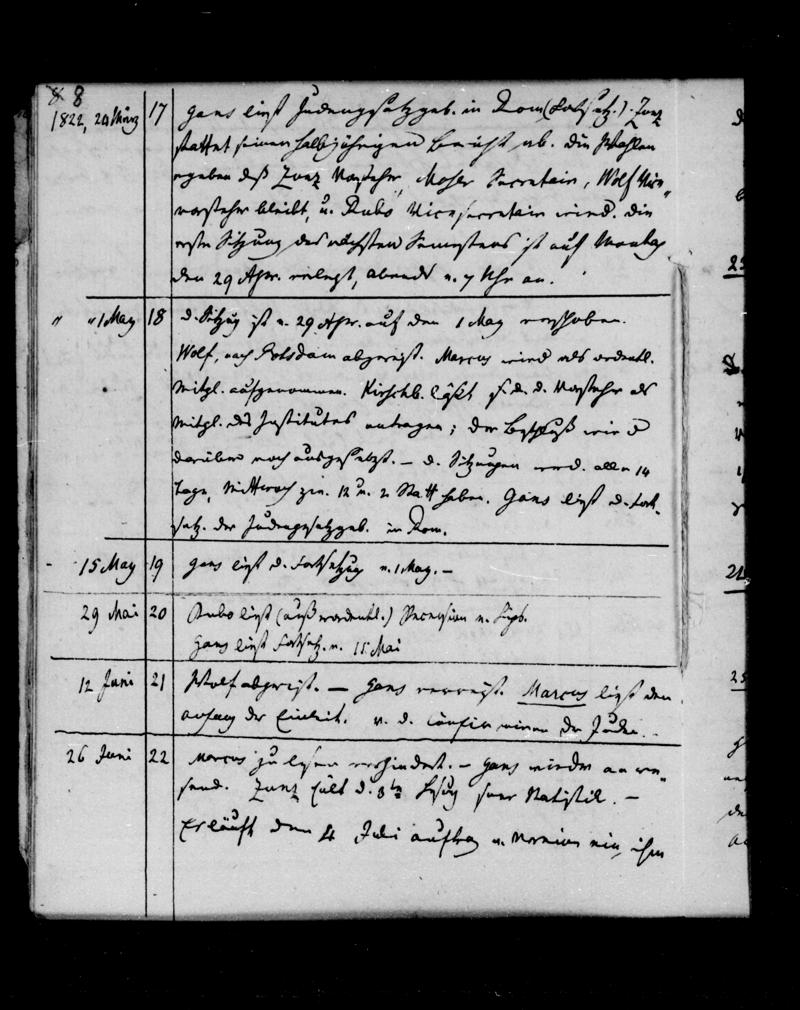 8 8
1822, 24 März 17 Gans liest Judengesetzgeb. in Rom (Fortsetz.). Zunz
stattet seinen halbjährigen Bericht ab. Die Wahlen
ergeben daß Zunz Vorsteher, Moser Secretair, Wolf Vice-
vorsteher bleibt, u. Rubo Vicesecretair wird. Die
erste Sitzung des nächsten Semesters ist auf Montag
den 29 Apr. verlegt, Abends u. 7 Uhr an.
" " 1 May 18 d. Sitzug ist v. 29 Apr. auf den 1 May verschoben.
Wolf, nach Potsdam abgereist. Marcus wird als ordentl.
Mitgl. aufgenommen. Kirschb. läßt d. d. Vorsteher als
Mitgl. des Institutes antragen; der Beschluß wird
darüber noch ausgesetzt. – d. Sitzungen werd. alle 14
Tage, Mittwoch zw. 12 u. 2 Statt haben. Gans liest d. Fort-
setz. der Judengesetzgeb. in Rom.
- 15 May 19 Gans liest d. Fortsetzug v. 1 May. –
29 Mai 20 Rubo liest (außerordentl.) Recension v.
Gans liest Fortsetz. v. 15 Mai
12 Juni 21 Wolf abgereist. – Gans verreist. Marcus liest den
Anfang der Einleit. v. d. der Juden.
26 Juni 22 Marcus zu lesen verhindert. – Gans wieder anwe-
send. Zunz hält d. 3te Statistik. –
den 4 Juli Auftrag v. ein, ihm